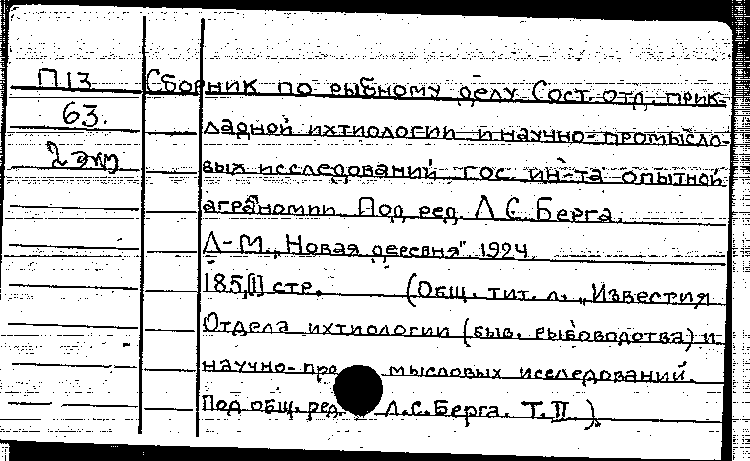 П13 Сборник по рыбному делу Сост. отд. прик-
63. ладной ихтиологии и научно-промысло-
2 экз вых исследований гос. ин-та опытной
агрономии. Под ред. Л.С. Берга.
Л-М. „Новая деревня" 1924.
185,[1] стр. (Общ. тит. л. „Известия
Отдела ихтиологии (быв. рыбоводства) и
научно-промысловых исследований.
Под общ. ред. Л.С. Берга. Т.II.)